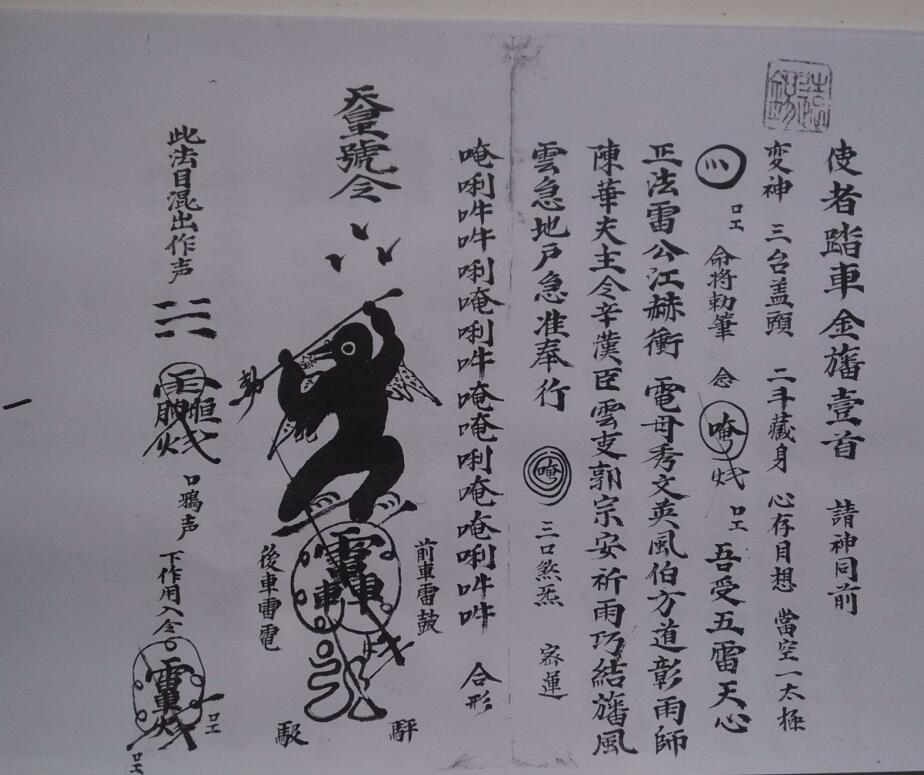 使者踏車金旛壹首　請神同前
変神　三台盖頭　二斗藏身　心存目想　當空一太極
命將勅筆　念　唵　吾受五雷天心
正法雷公江赫衝　電母秀文英風伯方道彰雨師
陳華夫主令辛漢臣雲吏郭宗安祈雨巧結旛風
雲急地戶急准奉行　唵　三口煞炁　宻運
唵唎吽吽唎唵唎吽唵唵唎唵唵唎吽吽　合形
天皇號令
勅
前車雷鼓
後車雷電
雷車
車
此法目混出作声
口鴉声
下作用入令